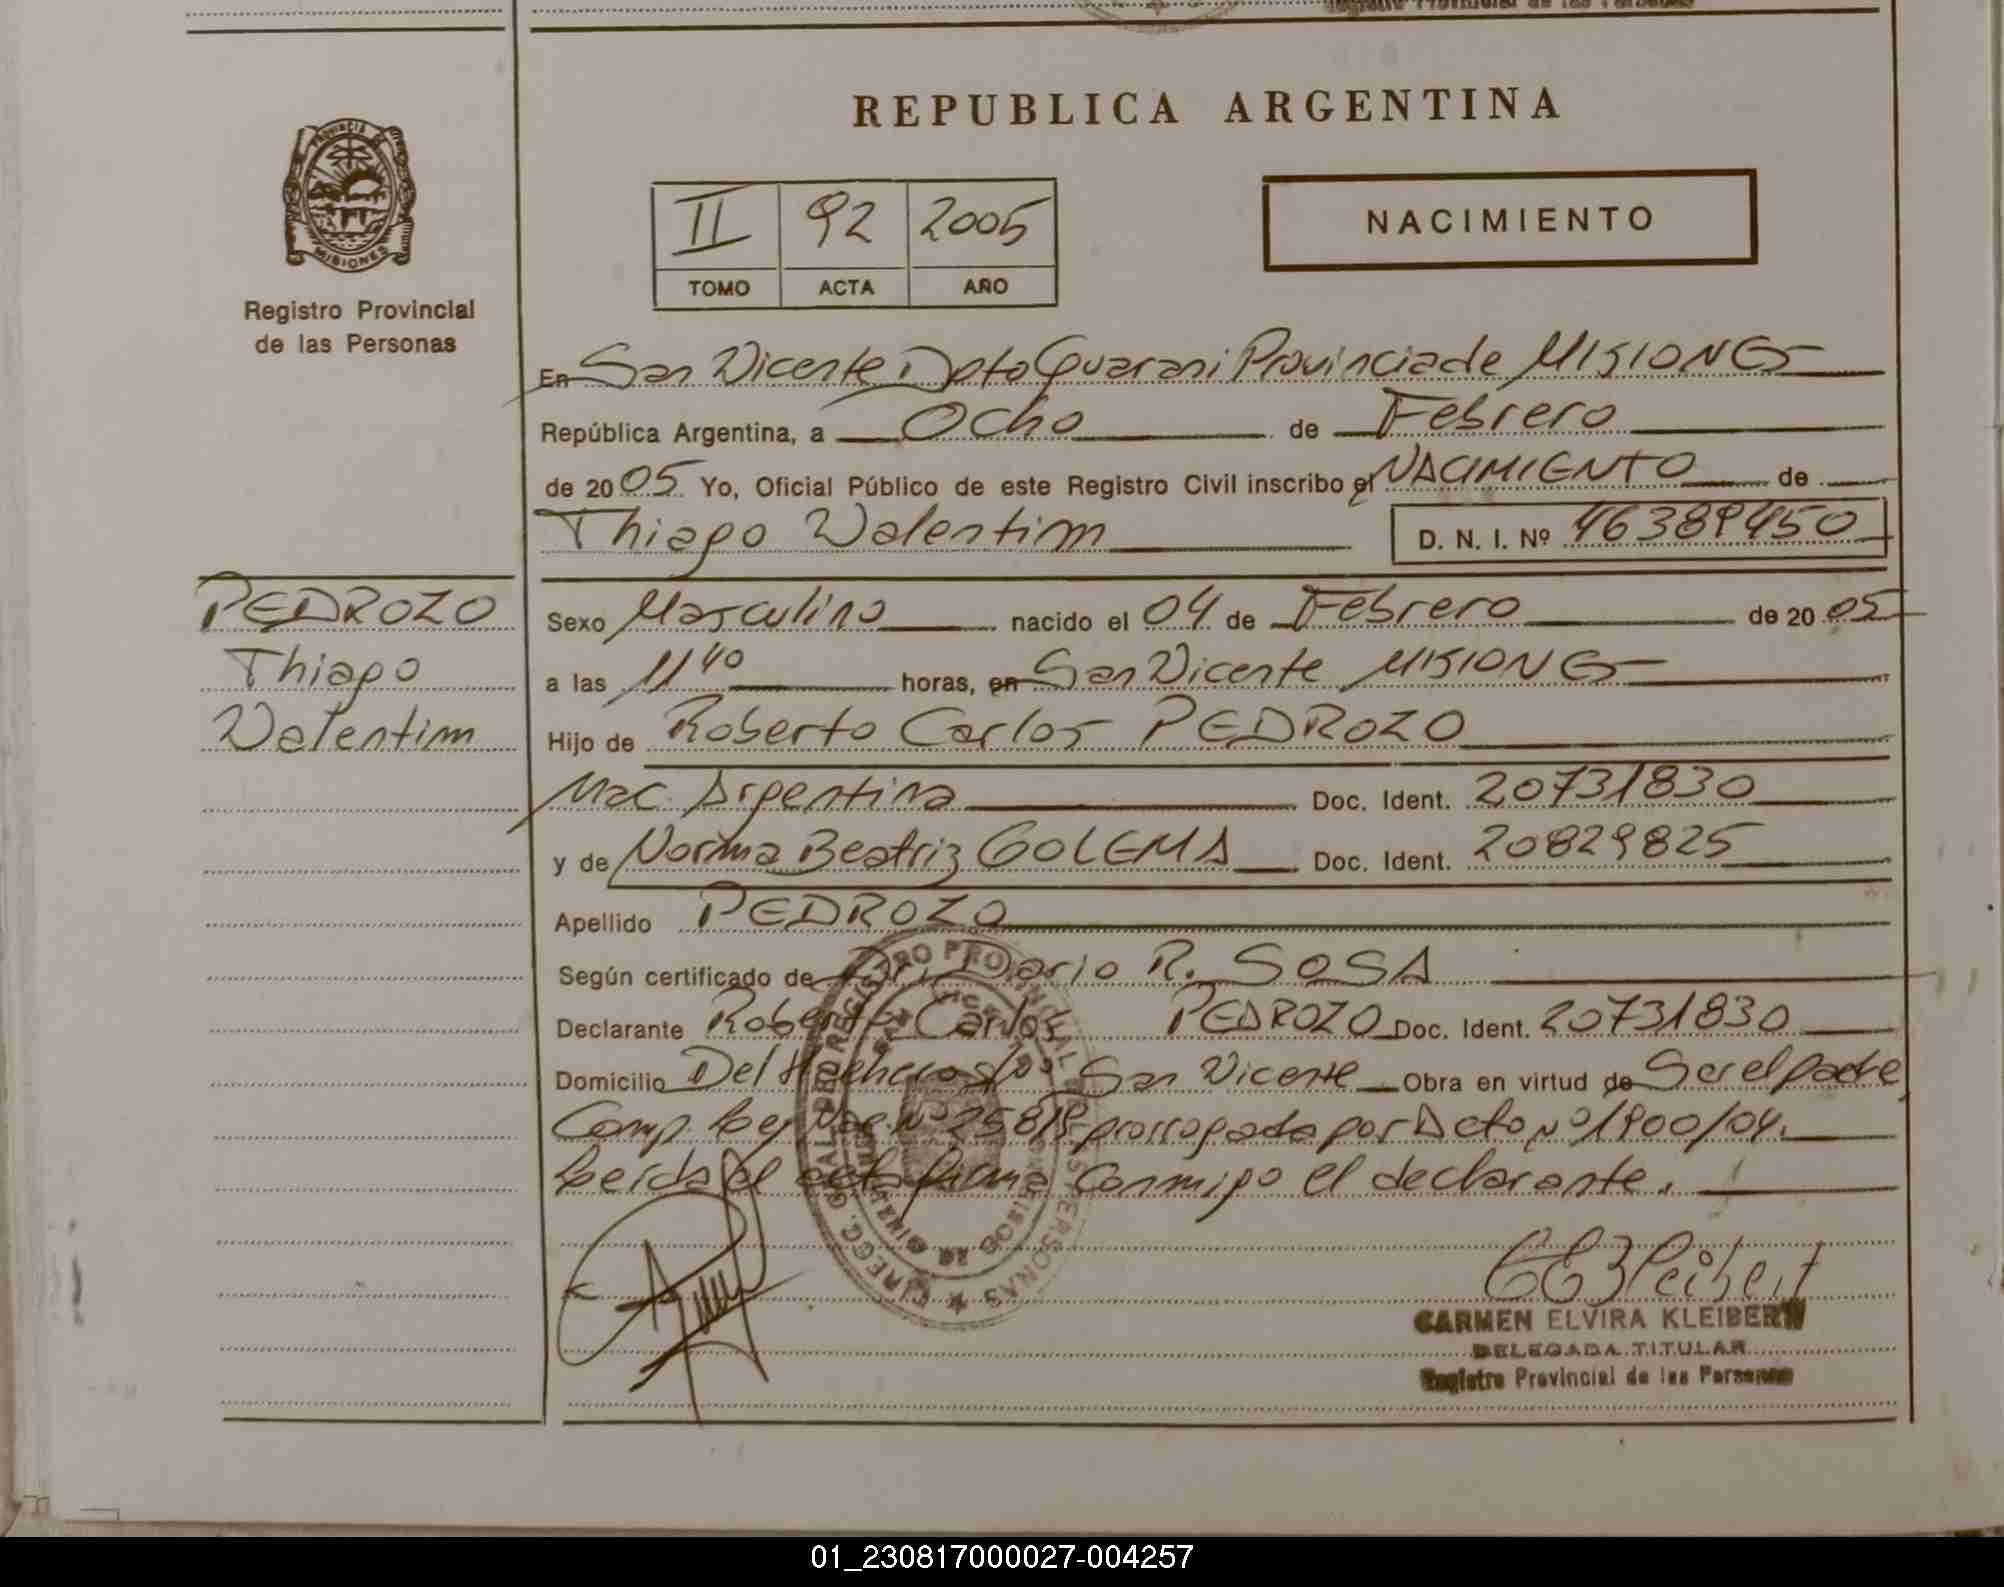 REPUBLICA ARGENTINA
PROVINCIA DE
MISIONES
Registro Provincial
de las Personas
II 92 2005
TOMO ACTA AÑO
NACIMIENTO
En San Vicente Dpto Guarani Provincia de MISIONES
República Argentina, a Ocho de Febrero
de 2005 Yo, Oficial Público de este Registro Civil inscribo el NACIMIENTO de
Thiago Valentim D. N. I. Nº 46389450
PEDROZO
Thiago
Valentim
Sexo Masculino nacido el 04 de Febrero de 2005
a las 11 40 horas, en San Vicente MISIONES
Hijo de Roberto Carlos PEDROZO
Nac. Argentina Doc. Ident. 20731830
y de Norma Beatriz GOLEMA Doc. Ident. 20829825
Apellido PEDROZO
Según certificado de Dr. Dario R. SOSA
Declarante Roberto Carlos PEDROZO Doc. Ident. 20731830
Domicilio Del Hachero s/nº San Vicente Obra en virtud de Ser el padre
Comp. Ley Nac. Nº 25819 prorrogada por Dcto Nº 1900/04.
Leida el acta firma conmigo el declarante.
CARMEN ELVIRA KLEIBERT
DELEGADA TITULAR
Registro Provincial de las Personas
01_230817000027-004257